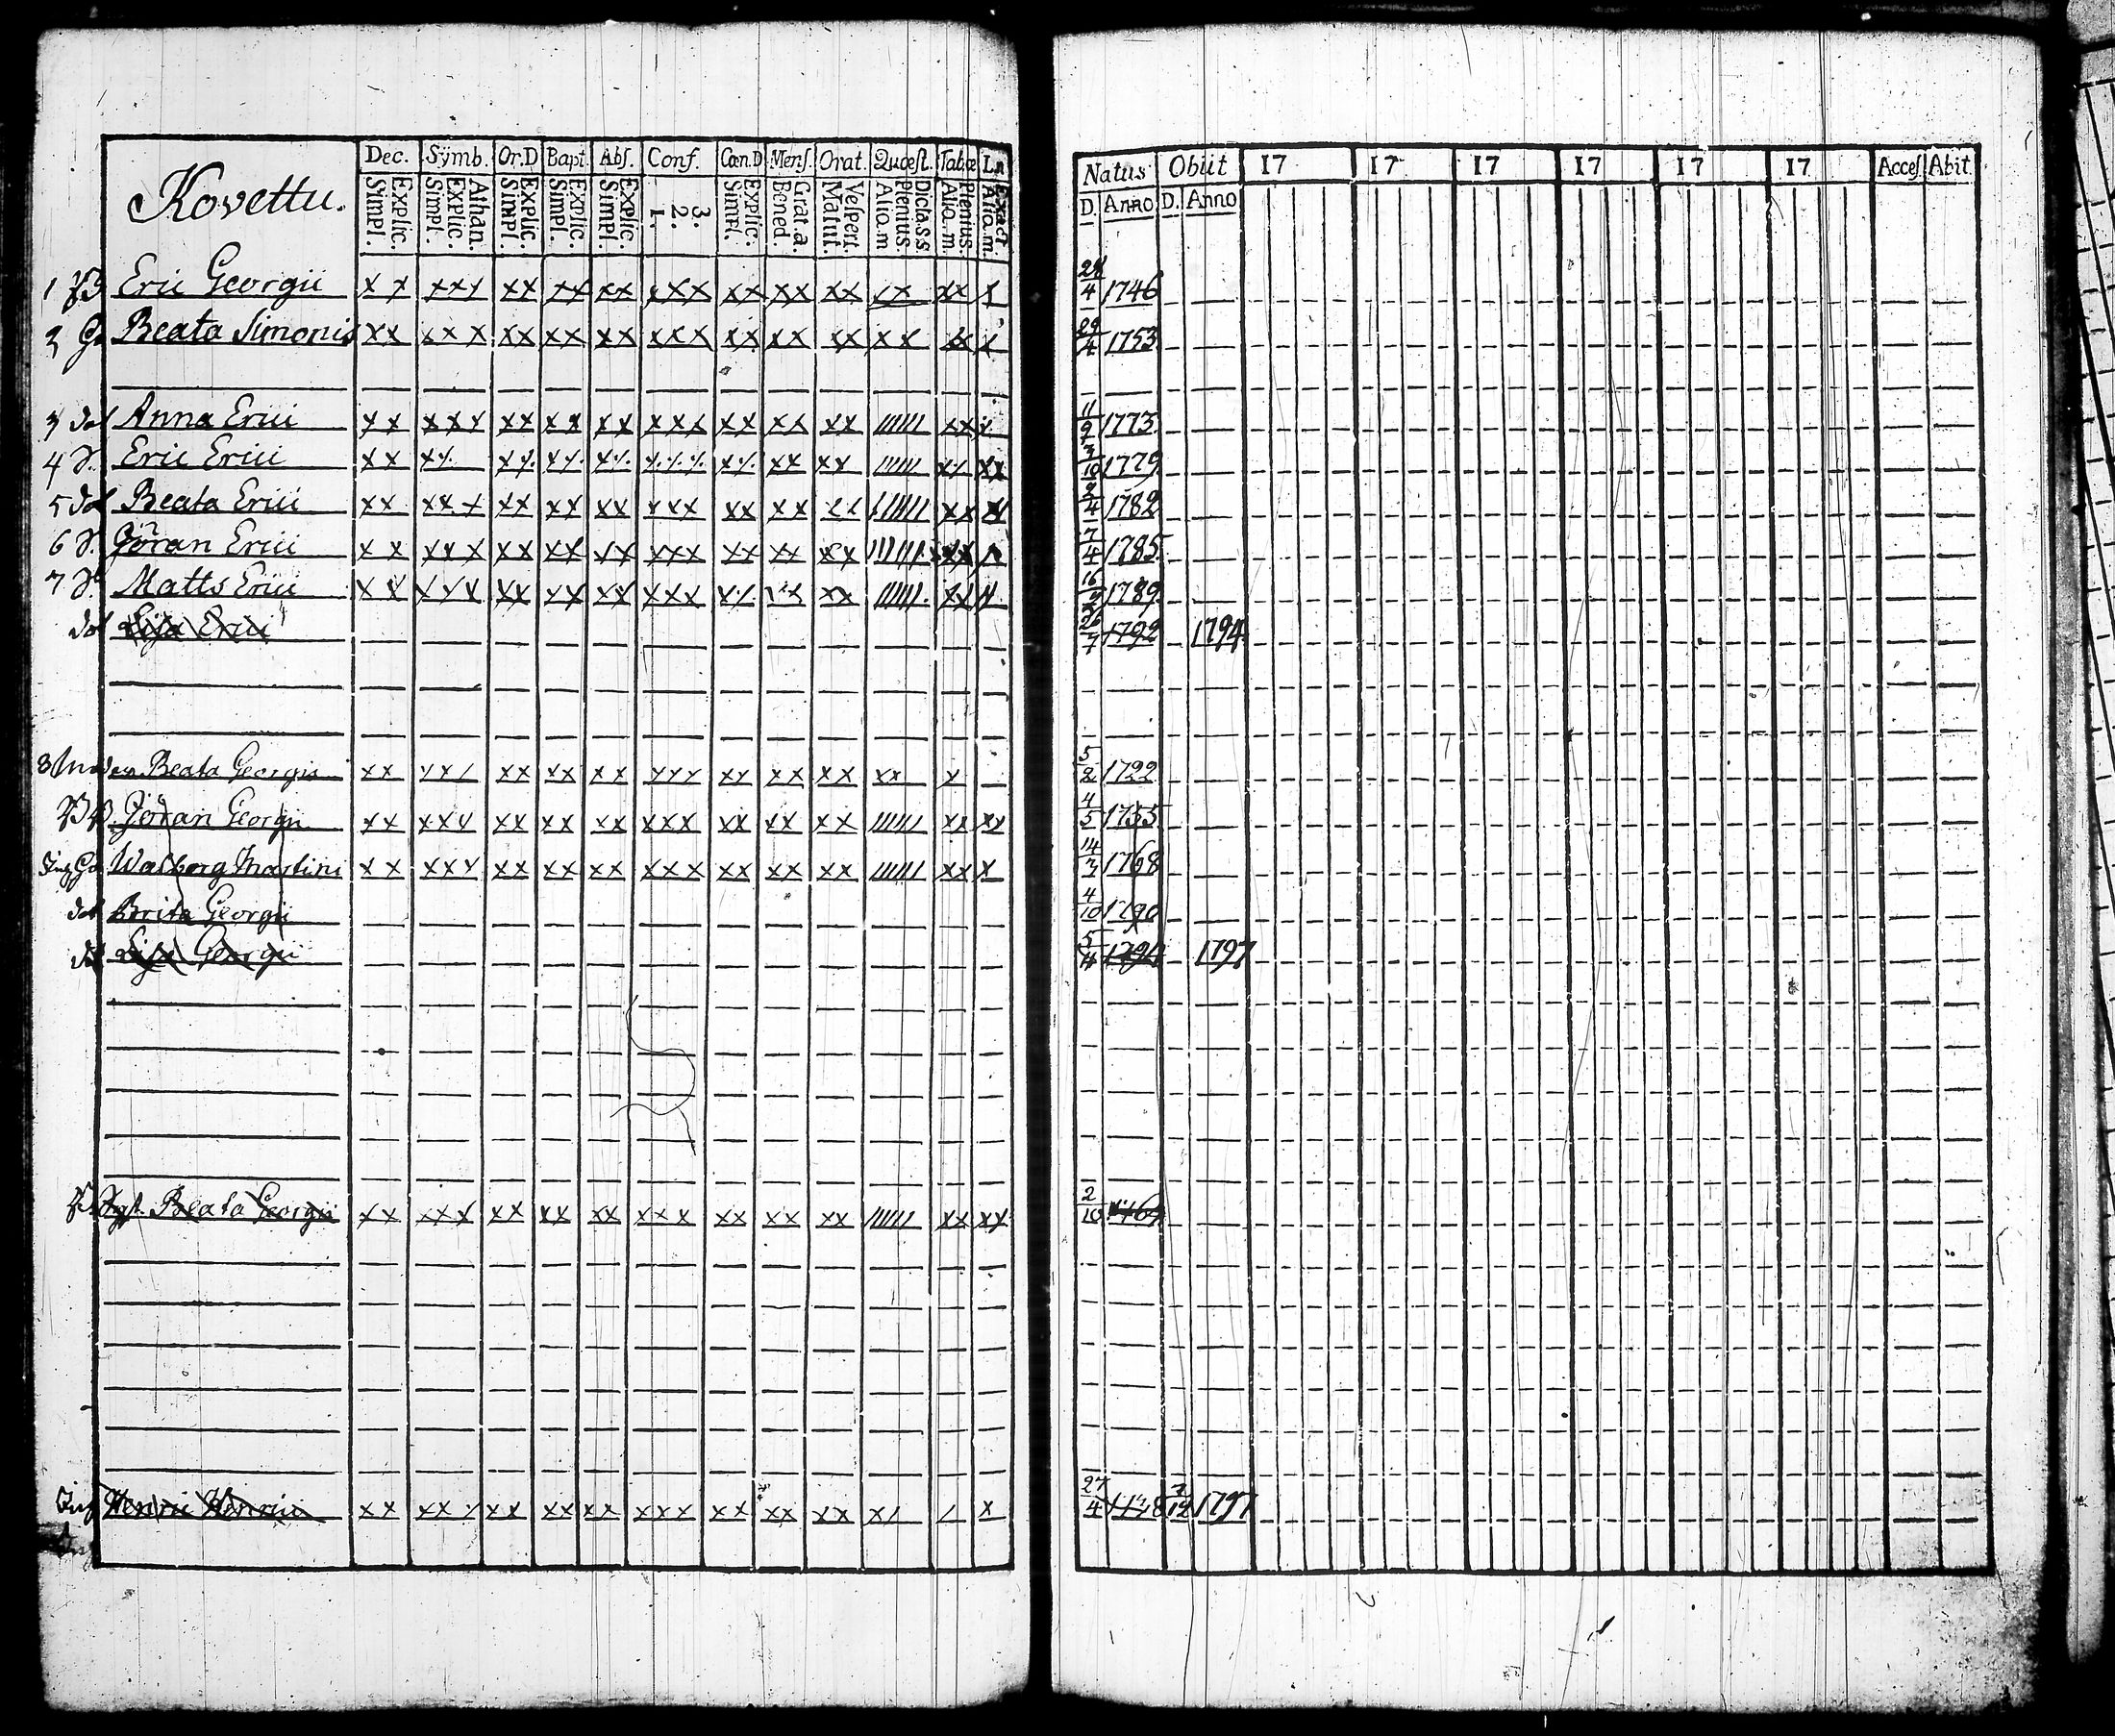 Kovettu. Dec. Sÿmb. Or.D Bapt. Abſ. Conf. Cœn.D Menſ. Orat. Quœſt. Tabœ Natus Obiit 17 17 17 17 17 17 Acceſ. Abit.
Simpl. Explic. Simpl. Explic. Athan. Simpl. Explic. Simpl. Explic. Simpl. Explic. 1. 2. 3. Simpl. Explic. Bened. Grat.a. Matut. Veſpert. Alio.m Plenius. Dicta.s.s. Alio.m. Plenius. Alio.m. Exact. D. Anno D. Anno
1 Eric Georgii x x x x x x x x x x x x x x x x x x x x x x x 4 1746
2 Beata Simonis x x x x x x x x x x x x x x x x x x x x x x x x x 29/4 1753
3 dot Anna Erici x x x x x x x x x x x x x x x x x x x x ////// x x 11/9 1773
4 S. Eric Erici x x 3/10 1779
5 dot Beata Erici x x x x x x x x x x x x x x x x x x x x 2/4 1782
6 S. Jöran Erici x x x x x x x x x x x x x x x x x x x x 7/4 1785
7 S. Matts Erici x x x x x x x x x x x x x x 16 1789
dot Lisa Erici 26/7 1792 1794
8 Beata Georgii x x x x x x x x x x x x x x x x x x x x x x x 5/8 1722
Jöran Georgii x x x x x x x x x x x x x x x x x x x x ////// x x x x 4/5 1755
Walborg Martini x x x x x x x x x x x x x x x x x x x x ////// x x x 14/3 1768
dot Brita Georgii 4/10 1790
dot Lisa Georgii 5 1797
Beata Georgii x x x x x x x x x x x x x x x x x x x x ////// x x x x 2/10
Henric Henrici x x x x x x x x x x x x x x x x x x x x x 27/4 12 1797